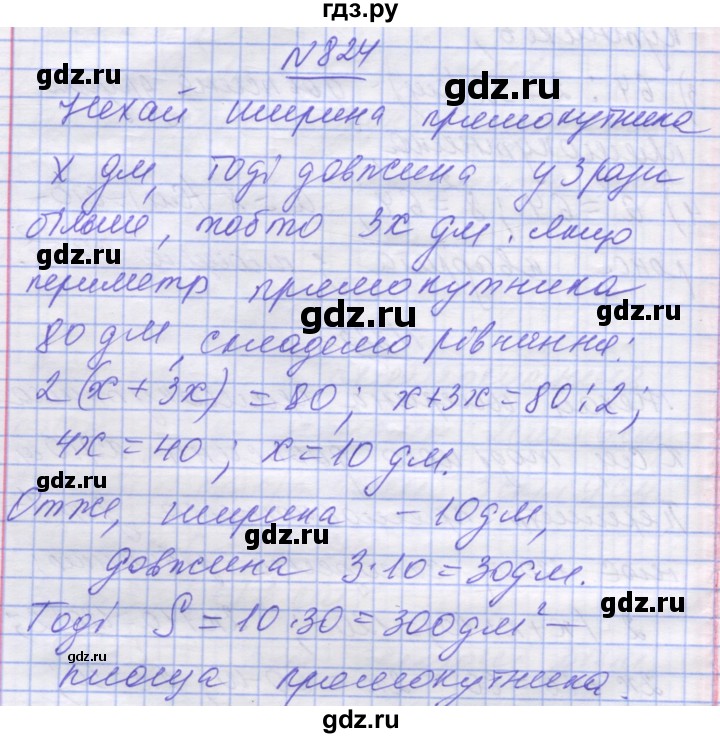 гдз.ру
N824
gdz.ru
gdz.ru
Нехай ширина прямокутника
gdz.ru
х дм, тоді довжина у 3 рази
більше, тобто 3х дм. Якщо
gdz.ru
периметр прямокутника
gdz.ru
gdz.ru
80 дм, складемо рівняння:
2(х + 3х) = 80; х+3х=80:2;
4х = 40; х = 10 дм.
gdz.ru
Отже, ширина – 10дм,
gdz.ru
довжина 3·10 = 30дм.
gdz.ru
Тоді S = 10·30 = 300дм² –
gdz.ru
площа прямокутника.
gdz.ru